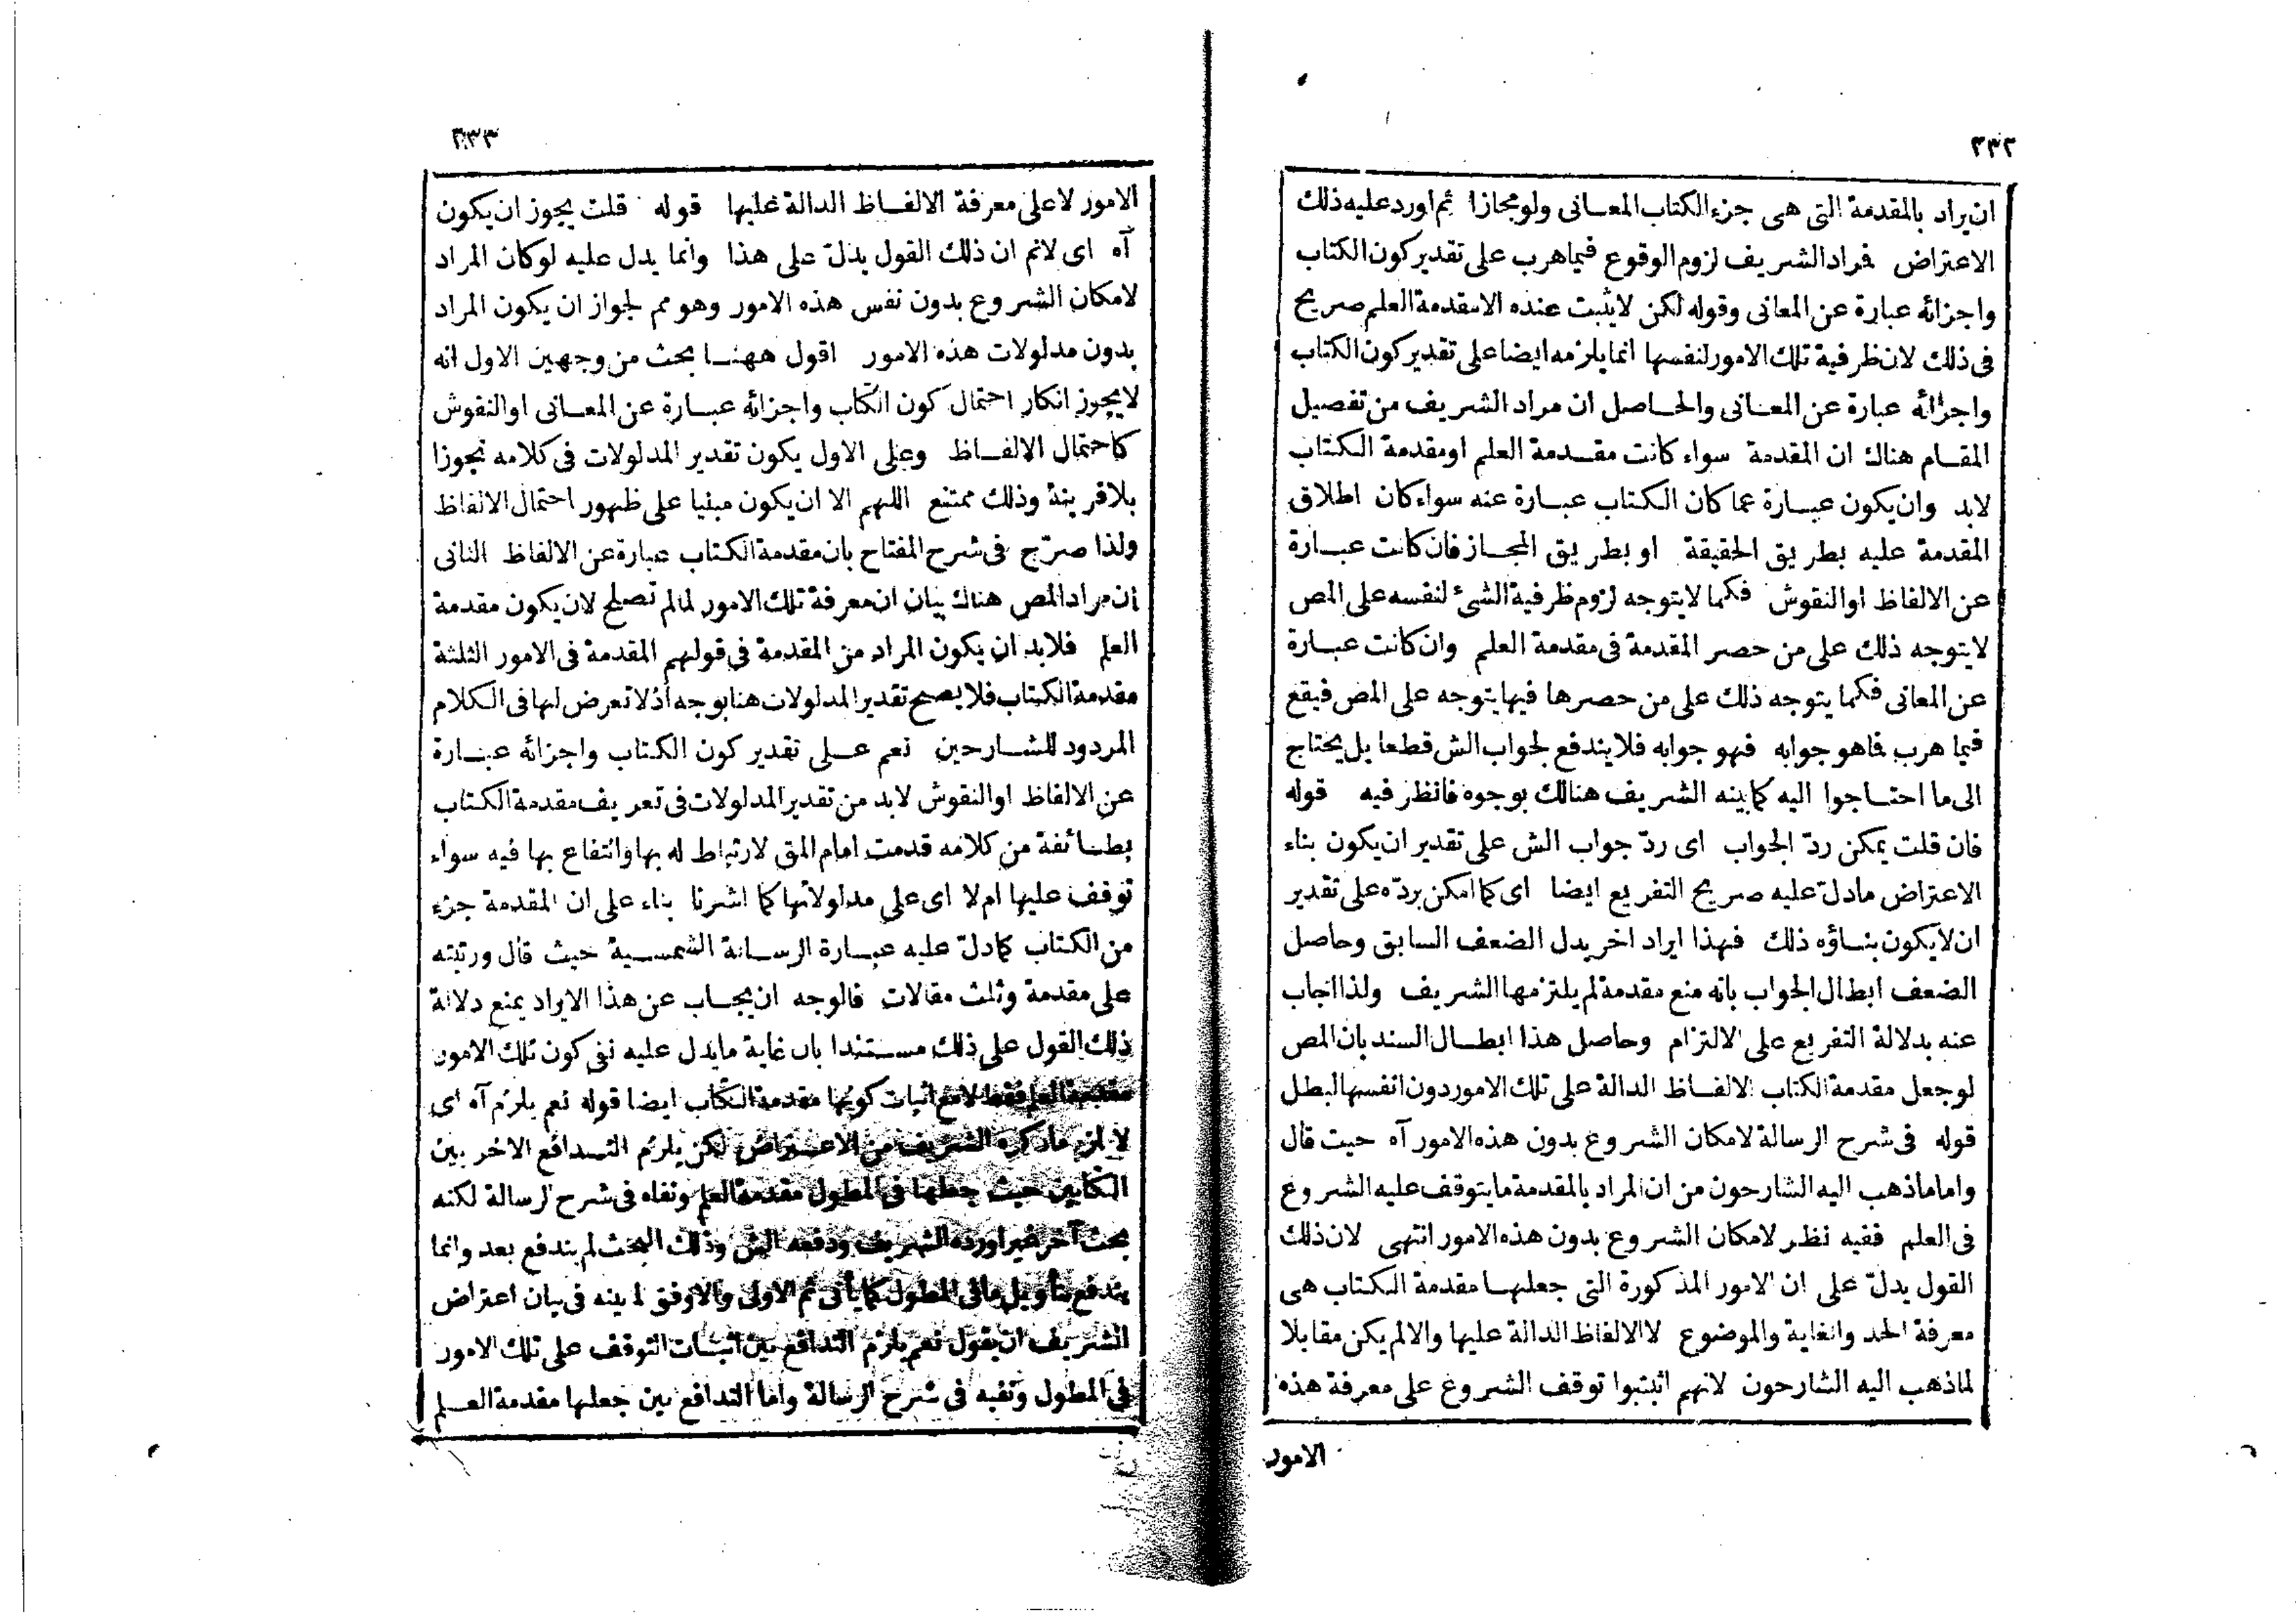 ٢٣٢
ان يراد بالمقدمة التى هى جزء الكتاب المعانى ولو مجازا ثم اورد عليه ذلك
الاعتراض فراد الشريف لزوم الوقوع فيما هرب على تقدير كون الكتاب
واجزائه عبارة عن المعانى وقوله لكن لا يثبت عنده الا مقدمة العلم صريح
فى ذلك لان ظرفية تلك الامور لنفسها انما يلزمه ايضا على تقدير كون الكتاب
واجزائه عبارة عن المعانى والحاصل ان مراد الشريف من تفصيل
المقام هناك ان المقدمة سواء كانت مقدمة العلم او مقدمة الكتاب
لابد وان يكون عبارة عما كان الكتاب عبارة عنه سواء كان اطلاق
المقدمة عليه بطريق الحقيقة او بطريق المجاز فان كانت عبارة
عن الالفاظ او النقوش فكما لا يتوجه لزوم ظرفية الشئ لنفسه على المص
لا يتوجه ذلك على من حصر المقدمة فى مقدمة العلم وان كانت عبارة
عن المعانى فكما يتوجه ذلك على من حصرها فيها يتوجه على المص فيقع
فيما هرب فاهو جوابه فهو جوابه فلا يندفع لجواب الش قطعا بل يحتاج
الى ما احتاجوا اليه كما بينه الشريف هنالك بوجوه فانظر فيه قوله
فان قلت يمكن ردّ الجواب اى ردّ جواب الش على تقدير ان يكون بناء
الاعتراض مادلّ عليه صريح التفريع ايضا اى كما امكن بردّه على تقدير
ان لا يكون بناؤه ذلك فهذا ايراد اخر يدل الضعف السابق وحاصل
الضعف ابطال الجواب بانه منع مقدمة لم يلتزمها الشريف ولذا اجاب
عنه بدلالة التفريع على الالتزام وحاصل هذا ابطال السند بان المص
لوجعل مقدمة الكتاب الالفاظ الدالة على تلك الامور دون انفسها لبطل
قوله فى شرح الرسالة لامكان الشروع بدون هذه الامور آه حيث قال
واما ماذهب اليه الشارحون من ان المراد بالمقدمة ما يتوقف عليه الشروع
فى العلم ففيه نظر لامكان الشروع بدون هذه الامور انتهى لان ذلك
القول يدلّ على ان الامور المذكورة التى جعلها مقدمة الكتاب هى
معرفة الحد والغاية والموضوع لا الالفاظ الدالة عليها والا لم يكن مقابلا
لماذهب اليه الشارحون لانهم اثبتوا توقف الشروع على معرفة هذه
الامور
٢٣٣
الامور لا على معرفة الالفاظ الدالة عليها قوله قلت يجوز ان يكون
آه اى لانم ان ذلك القول يدلّ على هذا وانما يدل عليه لو كان المراد
لامكان الشروع بدون نفس هذه الامور وهو مم لجواز ان يكون المراد
بدون مدلولات هذه الامور اقول ههنا بحث من وجهين الاول انه
لا يجوز انكار احتمال كون الكتاب واجزائه عبارة عن المعانى او النقوش
كاحتمال الالفاظ وعلى الاول يكون تقدير المدلولات فى كلامه تجوزا
بلا قرينة وذلك ممتنع اللهم الا ان يكون مبنيا على ظهور احتمال الالفاظ
ولذا صرّح فى شرح المفتاح بان مقدمة الكتاب عبارة عن الالفاظ الثانى
ان مراد المص هناك بيان ان معرفة تلك الامور لما لم تصلح لان يكون مقدمة
العلم فلابد ان يكون المراد من المقدمة فى قولهم المقدمة فى الامور الثلثة
مقدمة الكتاب فلا يصح تقدير المدلولات هنا بوجه اذ لا تعرض لها فى الكلام
المردود للشارحين نعم على تقدير كون الكتاب واجزائه عبارة
عن الالفاظ او النقوش لابد من تقدير المدلولات فى تعريف مقدمة الكتاب
بطائفة من كلامه قدمت امام المق لارتباط له بها وانتفاع بها فيه سواء
توقف عليها ام لا اى على مدلولاتها كما اشرنا بناء على ان المقدمة جزء
من الكتاب كما دلّ عليه عبارة الرسالة الشمسية حيث قال ورتبته
على مقدمة وثلث مقالات فالوجه ان يجاب عن هذا الايراد بمنع دلالة
ذلك القول على ذلك مستندا بان غاية ما يدل عليه نفى كون تلك الامور
مقدمة العلم فقط لا مع اثبات كونها مقدمة الكتاب ايضا قوله نعم يلزم آه اى
لا يلزم ما ذكره الشريف من الاعتراض لكن يلزم التدافع الاخر بين
الكتابين حيث جعلها فى المطول مقدمة العلم ونفاه فى شرح الرسالة لكنه
بحث آخر غير اورده الشريف ودفعه الش وذلك البحث لم يندفع بعد وانما
يندفع بتأويل ما فى المطول كما يأتى ثم الاولى والاوفق لما بينه فى بيان اعتراض
الشريف ان يقول نعم يلزم التدافع بين اثبات التوقف على تلك الامور
فى المطول ونفيه فى شرح الرسالة واما التدافع بين جعلها مقدمة العلم